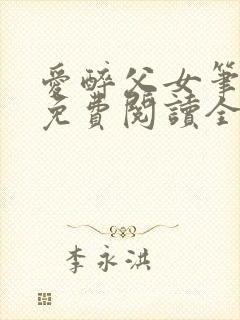 愛醉父女筆
免費閱讀全
李永洪